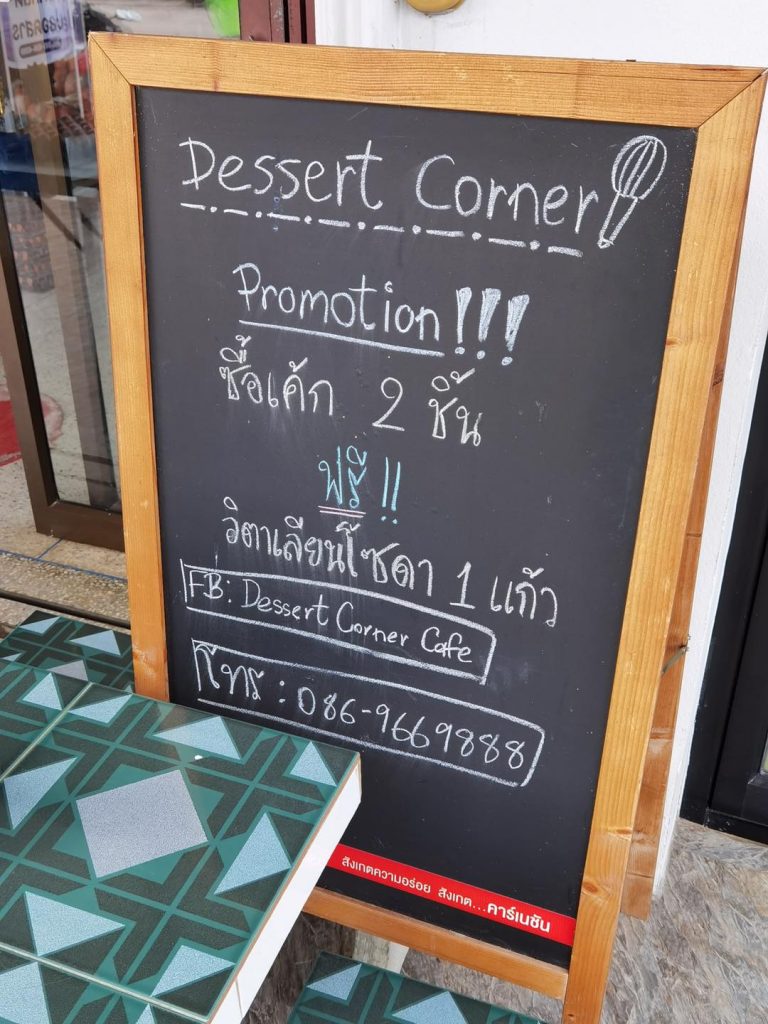 Dessert Corner
Promotion!!!
ซื้อเค้ก 2 ชิ้น
ฟรี!!
วิตาเลียนโซดา 1 แก้ว
FB: Dessert Corner Cafe
โทร: 086-9669888
สังเกตความอร่อย สังเกต...คาร์เนชัน